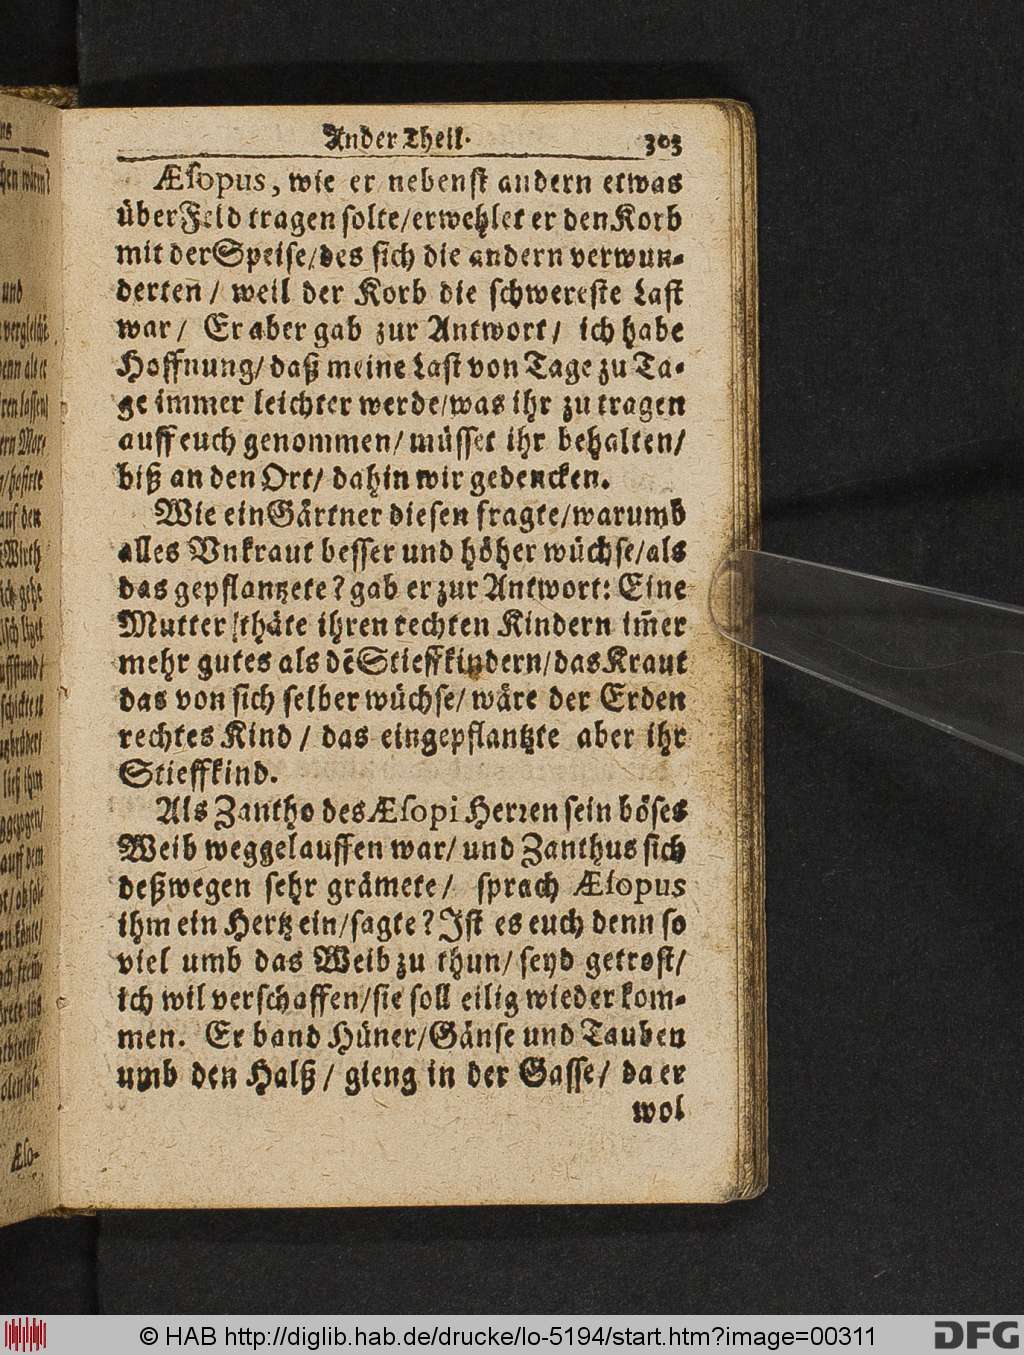 Ander Theil. 303
Æsopus, wie er nebenst andern etwas
über Feld tragen solte/erwehlet er den Korb
mit der Speise/des sich die andern verwun-
derten / weil der Korb die schwereste Last
war/ Er aber gab zur Antwort/ ich habe
Hoffnung/ daß meine Last von Tage zu Ta-
ge immer leichter werde/was ihr zu tragen
auff euch genommen/ müsset ihr behalten/
biß an den Ort/ dahin wir gedencken.
Wie ein Gärtner diesen fragte/warumb
alles Vnkraut besser und höher wüchse/als
das gepflantzete? gab er zur Antwort: Eine
Mutter thäte ihren rechten Kindern im̃er
mehr gutes als dē Stieffkindern/das Kraut
das von sich selber wüchse/ wäre der Erden
rechtes Kind / das eingepflantzte aber ihr
Stieffkind.
Als Zantho des Æsopi Herren sein böses
Weib weggelauffen war/ und Zanthus sich
deßwegen sehr grämete/ sprach Æsopus
ihm ein Hertz ein/sagte? Ist es euch denn so
viel umb das Weib zu thun/ seyd getrost/
ich wil verschaffen/sie soll eilig wieder kom-
men. Er band Hüner/Gänse und Tauben
umb den Halß / gieng in der Gasse/ da er
wol
und
auf den
auff dem
Æso-
© HAB http://diglib.hab.de/drucke/lo-5194/start.htm?image=00311
DFG